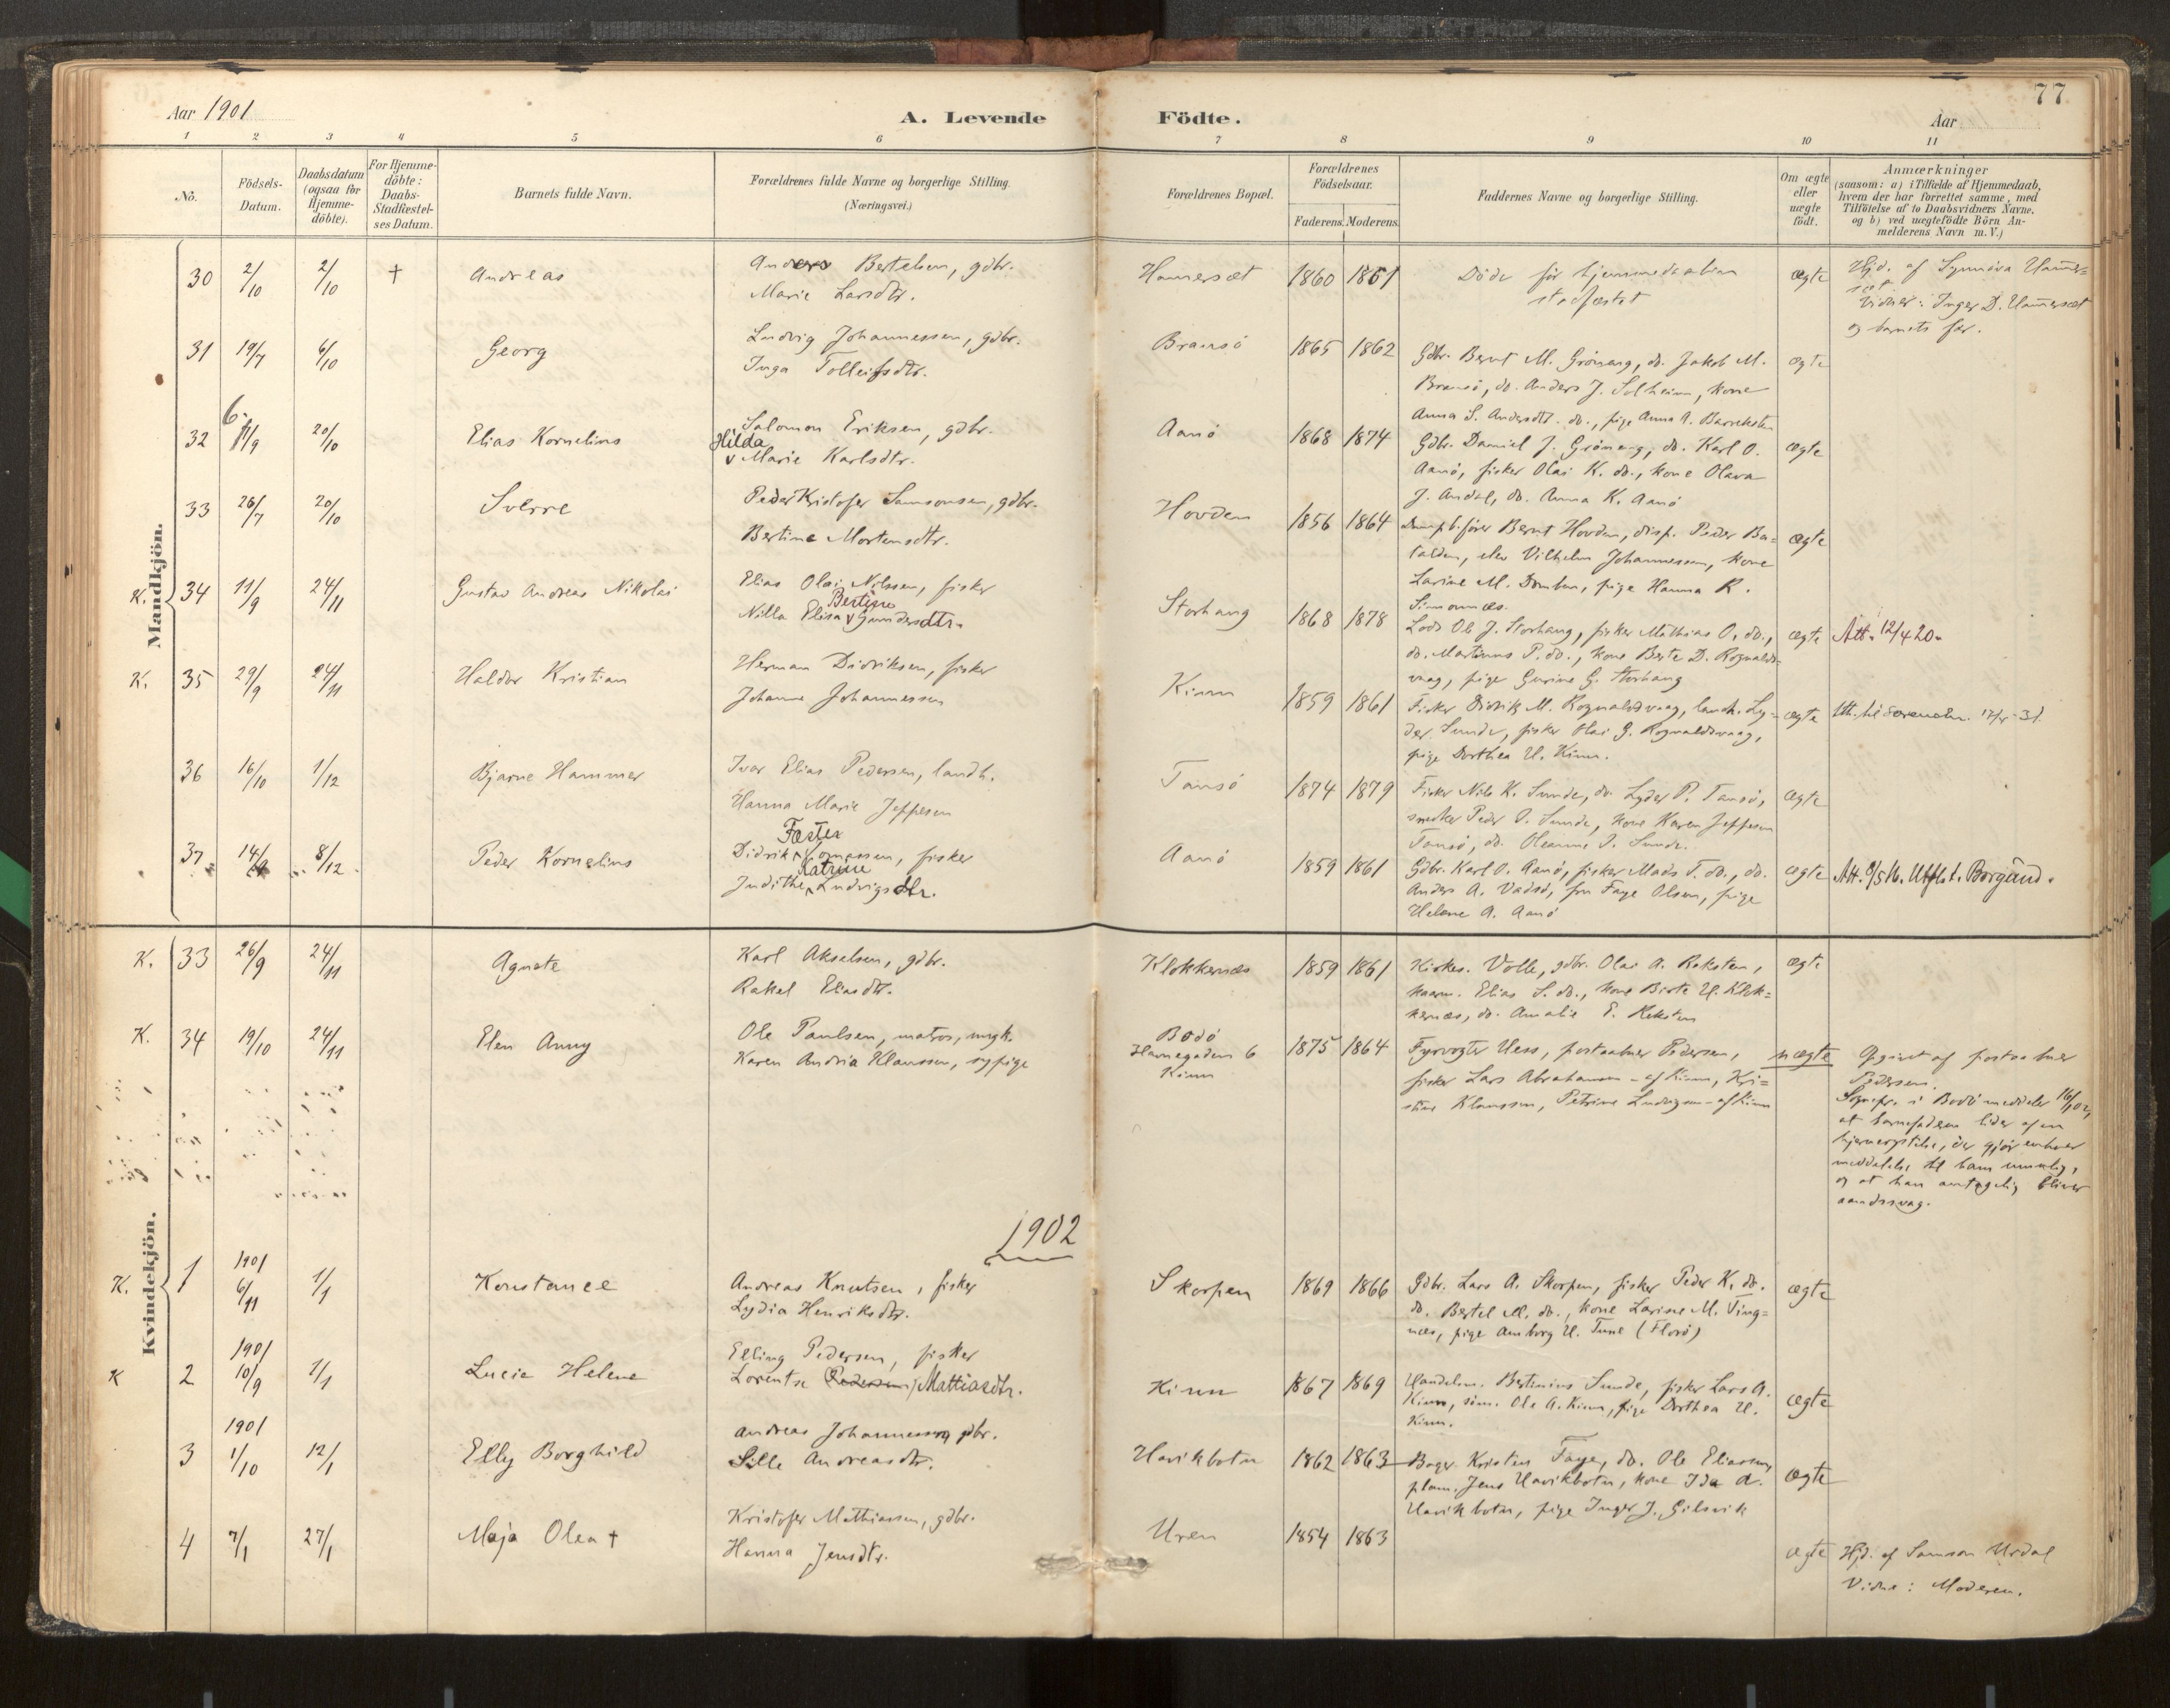 77
Aar 1901
A. Levende Födte.
Aar
1 2 3 4 5 6 7 8 9 10 11
No.
Födsels-
Datum.
Daabsdatum
(ogsaa for
Hjemme-
döbte).
For Hjemme-
döbte:
Daabs-
Stadfæstel-
ses Datum.
Barnets fulde Navn.
Forældrenes fulde Navne og borgerlige Stilling.
(Næringsvei.)
Forældrenes Bopæl.
Forældrenes
Födselsaar.
Faderens. Moderens.
Faddernes Navne og borgerlige Stilling.
Om ægte
eller
uægte
födt.
Anmærkninger
(saasom: a) i Tilfælde af Hjemmedaab,
hvem der har forrettet samme, med
Tilföielse af to Daabsvidners Navne,
og b) ved uægtefödte Börn An-
melderens Navn m. V.)
Mandkjön.
30 2/10 2/10 † Andreas
Anders Bertelsen, gdbr.
Marie Larsdtr.
Hamersæt 1860 1861
Döde för hjemmedaaben
stadfæstet
ægte
Hjd. af Synnöva Hamer=
sæt.
Vidner: Inger D. Hamersæt
og barnets far.
31 19/7 6/10 Georg
Ludvig Johannessen, gdbr.
Inga Tolleifsdtr.
Bransö 1865 1862
Gdbr. Bernt M. Gröneng, do. Jakob M.
Bransö, do. Anders J. Solheim, kone
Anna S. Andersdtr. do., pige Anna A. Barreksten
ægte
32 6/9 20/10 Elias Kornelius
Salomon Eriksen, gdbr.
Hilda
v Marie Karlsdtr.
Aanö 1868 1874
Gdbr. Daniel J. Gröneng, do. Karl O.
Aanö, fisker Olai K. do., kone Olava
J. Andal, do. Anna K. Aanö
ægte
33 26/7 20/10 Sverre
Peder Kristofer Samsonsen, gdbr.
Bertine Mortensdtr.
Hovden 1856 1864
Dampb.förer Bernt Hovden, disp. Peder Ba=
talden, elev Vilhelm Johannessen, kone
Larine M. Domben, pige Hanna R.
Simonnæs.
ægte
K. 34 11/9 24/11 Gustav Andreas Nikolai
Elias Olai Nilssen, fisker
Bertine
Nilla Elisa v Gundersdtr.
Storhaug 1868 1878
Lods Ole J. Storhaug, fisker Mathias O. do.,
do. Martinus P. do., kone Berte D. Rognalds-
vaag, pige Gurine G. Storhaug
ægte
Att. 12/4 20.
K. 35 29/9 24/11 Haldor Kristian
Herman Didriksen, fisker
Johanne Johannessen
Kinn 1859 1861
Fisker Didrik M. Rognaldsvaag, landh. Ly=
der Sunde, fisker Olai G. Rognaldsvaag,
pige Dorthea H. Kinn.
ægte
36 16/10 1/12 Bjarne Hammer
Ivar Elias Pedersen, landh.
Hanna Marie Jeppesen
Tansö 1874 1879
Fisker Nils K. Sunde, do. Lyder P. Tansö,
snedker Peder J. Sunde, kone Karen Jeppesen
Tansö, do. Oleanne J. Sunde.
ægte
37 14/9 8/12 Peder Kornelius
Fæster
Didrik Tomassen, fisker
Katrine
Judithe Ludvigsdtr.
Aanö 1859 1861
Gdbr. Karl O. Aanö, fisker Mads T. do., do.
Anders A. Vadsö, fru Faye Olsen, pige
Helene A. Aanö
ægte
Att. 9/5 16. Utfl. t. Borgund.
Kvindekjön.
K. 33 26/9 24/11 Agnete
Karl Akselsen, gdbr.
Rakel Eliasdtr.
Klokkernæs 1859 1861
Kirkes. Volle, gdbr. Olai A. Reksten,
kaarm. Elias S. do., kone Birte H. Klok=
kernæs, do. Amalie E. Reksten
ægte
K. 34 19/10 24/11 Elen Anny
Ole Paulsen, matros, ungk.
Karen Andria Klaussen, sypige
Bodö
Havnegaden 6
Kinn
1875 1864
Fyrvogter Hess, postaabner Pedersen,
fisker Lars Abrahamsen - af Kinn, Kri=
stine Klaussen, Petrine Ludvigsen - af Kinn
uægte
Opgivet af postaabner
Pedersen.
Sognepr. i Bodö meddeler 16/1 02,
at barnefaderen lider af en
hjernerystelse, der gjör enhver
meddelelse til ham umulig,
og at han antagelig bliver
aandssvag.
1902
K. 1 1901 6/11 1/1 Konstance
Andreas Knutsen, fisker
Lydia Henriksdtr.
Skorpen 1869 1866
Gdbr. Lars A. Skorpen, fisker Peder K. do.
do. Bertel M. do., kone Larine M. Ting=
næs, pige Amborg H. Tune (Florö)
ægte
K 2 1901 10/9 1/1 Lucie Helene
Elling Pedersen, fisker
Lorentse (Pedersen) Mattiasdtr.
Kinn 1867 1869
Handelsm. Bertinius Sunde, fisker Lars A.
Kinn, söm. Ole A. Kinn, pige Dorthea H.
Kinn.
ægte
3 1901 1/10 12/1 Elly Borghild
Andreas Johannessen gdbr.
Sille Andreasdtr.
Havikbotn 1862 1863
Bager Kristen Faye, do. Ole Eliassen,
plom. Jens Havikbotn, kone Ida A.
Havikbotn, pige Inger J. Gilsvik
ægte
4 7/1 27/1 Maja Olea †
Kristofer Mathiassen, gdbr.
Hanna Jensdtr.
Uren 1854 1863
ægte
Hjd. af Samson Urdal
Vidne: Moderen.